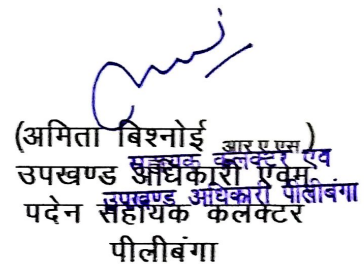 (अमिता बिश्नोई आर ए एस)
सहायक कलक्टर एवं
उपखण्ड अधिकारी एवम
उपखण्ड अधिकारी पीलीबंगा
पदेन सहायक कलक्टर
पीलीबंगा